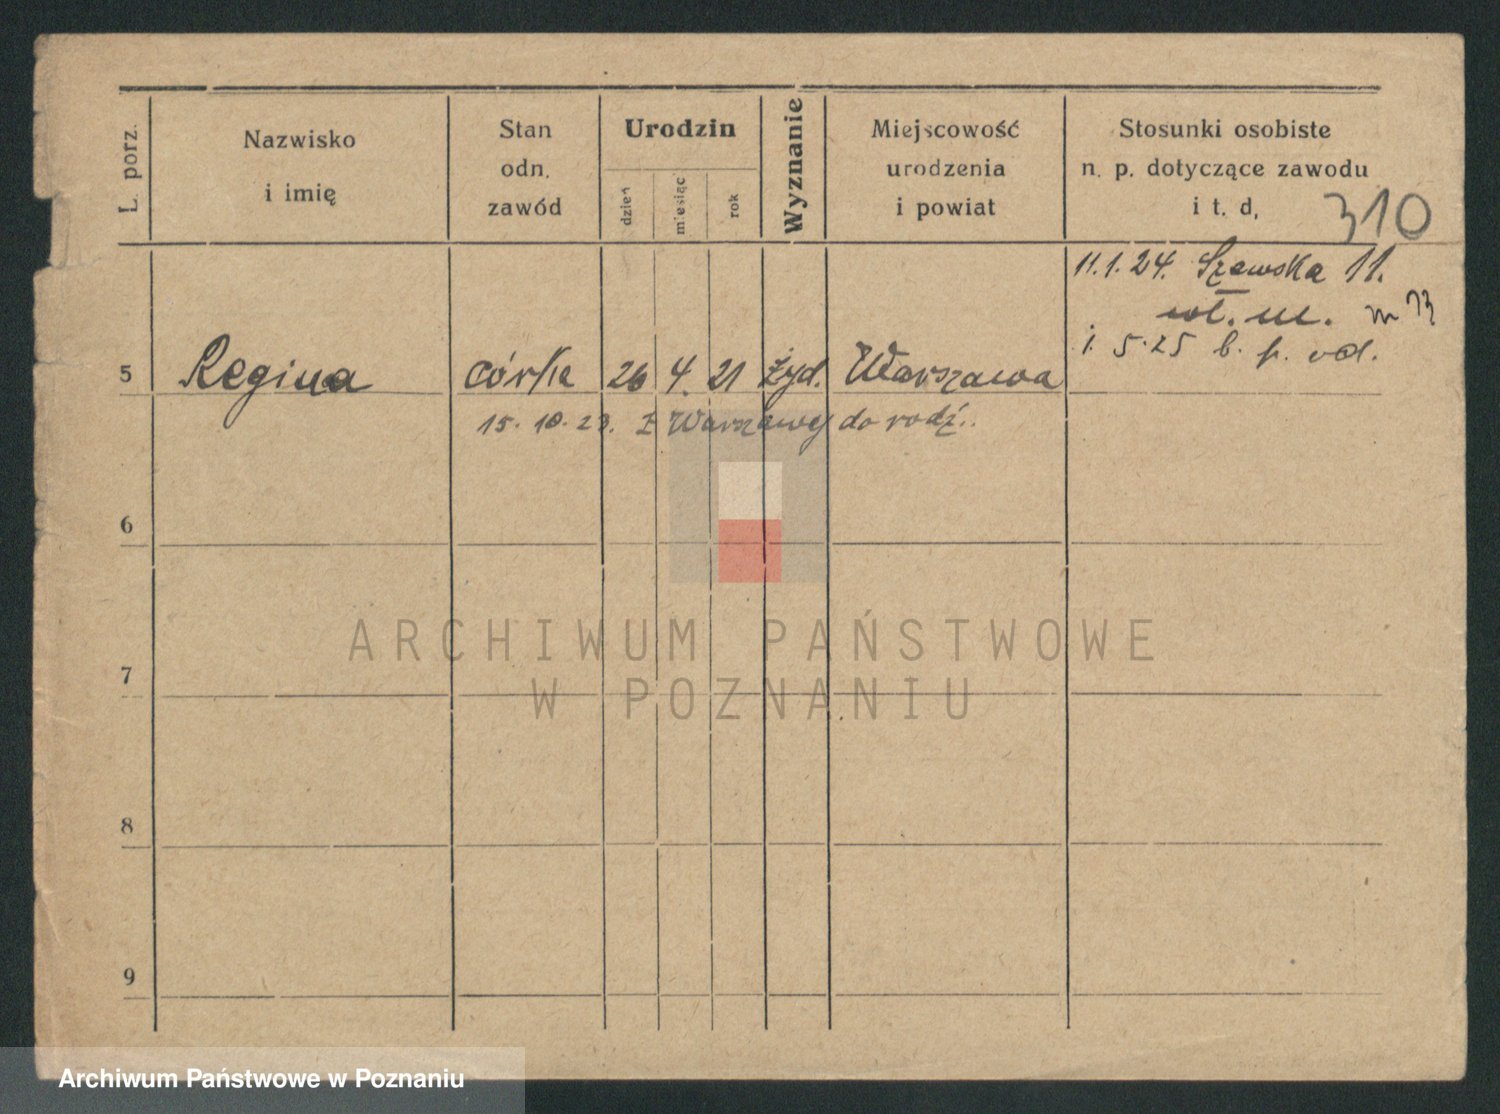 L. porz.
Nazwisko
i imię
Stan
odn.
zawód
Urodzin
dzień
miesiąc
rok
Wyznanie
Miejscowość
urodzenia
i powiat
Stosunki osobiste
n. p. dotyczące zawodu
i t. d,
310
11.1.24. Szewska 11.
wł. m. m 13
1. 5.25 b. p. od.
5 Regina córka 26 4. 21 żyd. Warszawa
15. 10. 23. z Warszawy do rodź..
6
7
8
9
ARCHIWUM PAŃSTWOWE
W POZNANIU
Archiwum Państwowe w Poznaniu